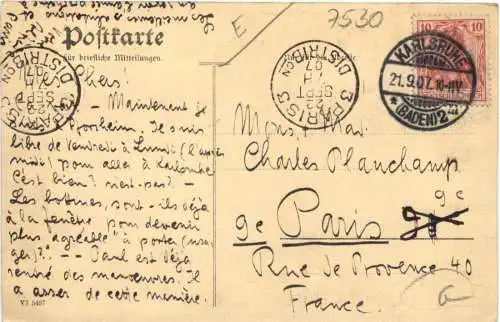 7530
E
Postkarte
für briefliche Mitteilungen.
10 10
KARLSRUHE
21.9.07. 10-11V.
*(BADEN)2*
PARIS 3
DISTRIBUTION
22
SEPT
07
PARIS 3
DISTRIBUTION
SEPT
07
Maintenant je
Pforzheim. Je suis
libre de Vendredi à Lundi (l'après
midi) pour aller à Karlsruhe
C'est bien? n'est-pas? -
Les bottines, sont-ils déjà
à la fenêtre pour devenir
plus agréable à porter (usa,
ger)? - - Paul est déjà
rentré des manœuvres. Il
a assez de cette manière.
Monsieur
Charles Planchamp
9e
9e Paris
Rue de Provence 40
France.
V3 5467